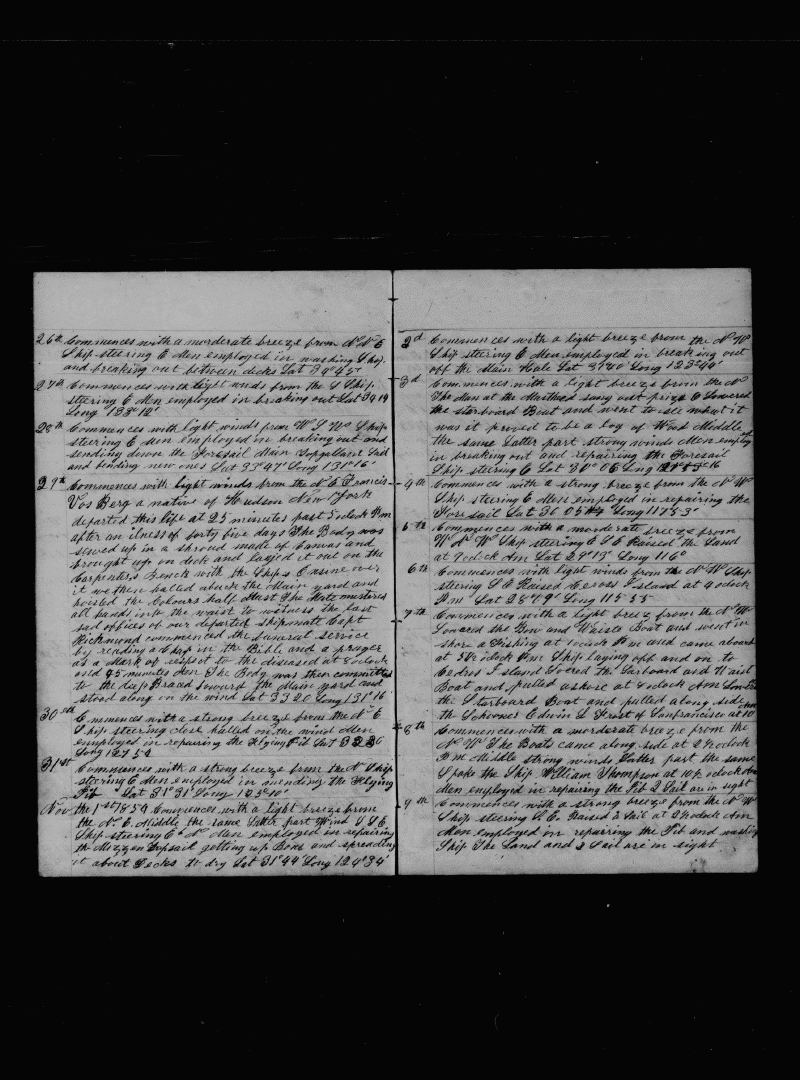 26th Commences with a morderate breeze from N N E
Ship steering E Men employed in washing Ship
and breaking out between decks Lat 34° 45'
27th Commences with light winds from the S Ship
steering E Men employed in breaking out Lat 34 14
Long 133° 12'
28th Commences with light winds from W S W Ship
steering E Men employed in breaking out and
sending down the Foresail Main Topgallant Sail
and bending new ones Lat 33° 47' Long 131° 16'
29th Commences with light winds from the N E Francis
Vos Berg a native of Hudson New York
departed this life at 25 minutes past 5 oclock Pm
after an ilness of forty five days The Body was
sewed up in a shroud made of Canvas and
brought up on deck and layed it out on the
Carpenters Bench with the Ships Ensine over
it we then halled aback the Main yard and
hoisted the Colours half Mast The Mate mustered
all hands into the waist to witness the last
sad offices of our departed shipmate Capt
Richmond commenced the funeral service
by reading a Chap in the Bible and a prayer
as a Mark of respect to the diseased at 8 oclock
and 45 minutes Am The Body was then committed
to the deep Braced forward the Main yard and
stood along on the wind Lat 33 20 Long 131° 16
30eth Commences with a strong breeze from the N E
Ship steering close halled on the wind Men
employed in repairing the Flying Jib Lat 32 26
Long 127 54
31st Commences with a strong breeze from the N Ship
steering E Men employed in mending the Flying
Jib Lat 31° 31' Long 125° 10'
Nov the 1st 1854 Commences with a light breeze from
the N E Middle the same Latter part Wind S S E
Ship steering E N Men employed in repairing
the Mezzen Topsail getting up Bone and spreading
it about Decks to dry Lat 31° 44' Long 124° 34'
2d Commences with a light breeze from the N W
Ship steering E Men employed in breaking out
off the Main Hole Lat 31° 20' Long 123° 44'
3d Commences with a light breeze from the N
The Man at the Masthead sung out prize O Lowered
the starboard Boat and went to see what it
was it proved to be a Log of Wood Middle
the same Latter part strong winds Men employ ed
in breaking out and repairing the Foresail
Ship steering E Lat 30° 06 Long
4th Commences with a strong breeze from the N W
Ship steering E Men employed in repairing the
Foresail Lat 30 05 Long 117 53'
5th Commences with a morderate breeze from
N N W Ship steering E S E Raised the Land
at 9 oclock Am Lat 29° 13' Long 116°
6th Commences with light winds from the N W Ship
steering S E Raised Cerros Island at 4 oclock
P.m Lat 28° 49' Long 115 55
7th Commences with a light breez from the N W
Lowered the Bow and Waist Boat and went in
shore a Fishing at 1 oclock Pm and came aboard
at 5½ oclock Pm Ship laying off and on to
Cedros Island Lowered the Larboard and Waist
Boat and pulled ashore at 4 oclock Am Lowered
the Starboard Boat and pulled along side
the Schooner Edwin L Frost of Sanfrancisco at 10 Am
8th Commences with a morderate breeze from the
N W The Boats came along side at 2½ oclock
P.m Middle strong winds Latter part the same
Spoke the Ship William Thompson at 10½ oclock Am
Men employed in repairing the Jib 2 Sail are in sight
9th Commences with a strong breeze from the N W
Ship steering S E Raised 2 Sail at 2½ oclock Am
Men employed in repairing the Jib and washing
Ship The Land and 2 Sail are in sight